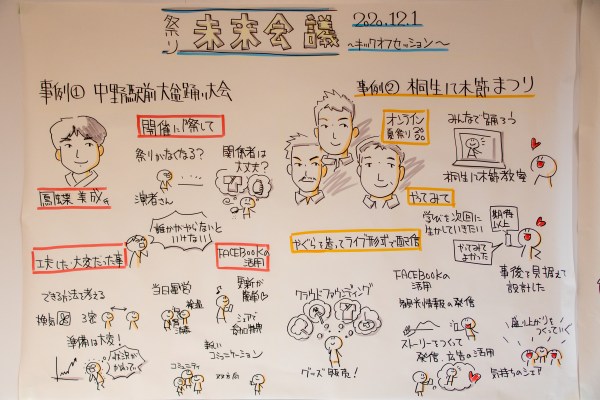 祭り
未来会議
2020.12.1
～キックオフセッション～
事例① 中野駅前大盆踊り大会
開催に際して
祭りがなくなる?
演者さん
関係者は
大丈夫?
鳳蝶 美成氏
誰かがやらないと
いけない!
工夫した・大変だった事
FACEBOOKの
活用
できる方法で考える
換気
3密
準備は大変!
状況が
かわっていく
当日運営
検温
消毒
コミュニティ
更新が
簡単
シェアで
参加特典
軽い
コミュニケーション
双方向
事例② 桐生八木節まつり
オンライン
夏祭り
みんなで踊ろう
桐生八木節教室
やってみて
学びを次回に
生かしていきたい
期待
以上
やってみて
よかった
事後で見据えて
設計した
やぐらで造ってライブ形式で配信
クラウドファウンディング
グッズ販売!
FACEBOOKの
活用
観光情報の発信
ストーリーをつくって
発信、広告の活用
盛り上がりを
つくっていく
気持ちのシェア